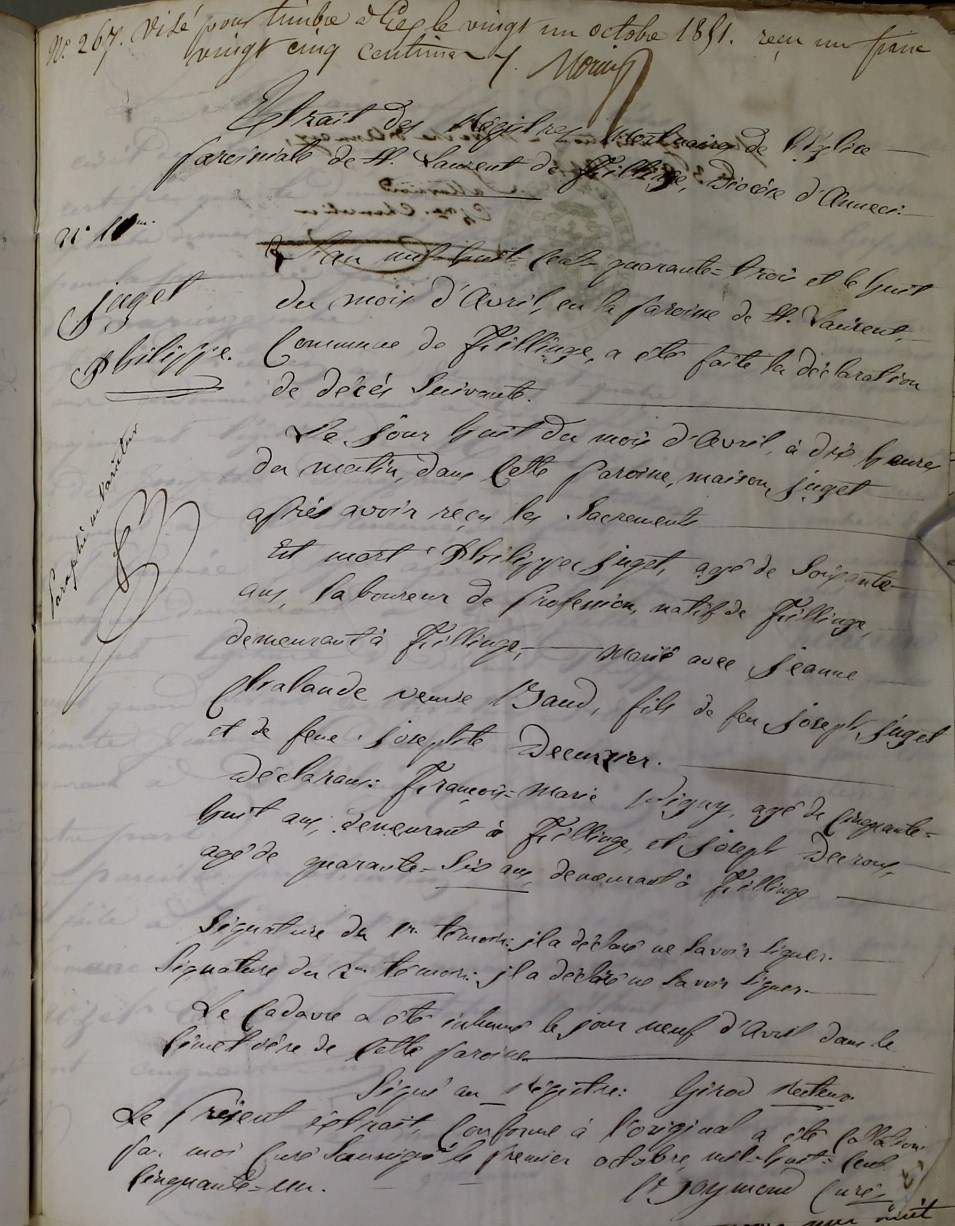 N.° 267. Visé pour timbre à Gex le vingt un octobre 1851. reçu un franc
vingt cinq centimes
Extrait des Régistres mortuaires de l'Eglise
paroissiale de St. Laurent de Fillinge, Diocèse d'Anneci.
n.° 10
L'an mil-huit-cent-quarante-trois et le huit
juget
Philippe.
du mois d'Avril, en la paroisse de St. Laurent,
Commune de Fillinge, a été faite la déclaration
de décès suivante.
Le jour huit du mois d'Avril, à dix heures
du matin, dans cette paroisse, maison juget
après avoir reçu les Sacrements
Paraphé ne varietur
Est mort Philippe juget, agé de soixante
ans, laboureur de profession, natif de Fillinge,
demeurant à Fillinge, marié avec jeanne
Chalande veuve Baud, fils de feu joseph juget
et de feue josephte Decurzier.
Déclarans: François-Marie agé de cinquante-
huit ans, demeurant à Fillinge, et joseph Decroux,
agé de quarante-six ans, demeurant à Fillinge
Signature du 1er témoin: il a déclaré ne savoir signer.
Signature du 2me témoin: il a déclaré ne savoir signer.
Le Cadavre a été inhumé le jour neuf d'Avril dans le
Cimetière de cette paroisse
Signé au Régistre: Girod Recteur
Le présent extrait, Conforme à l'original a été Collationé
par moi Curé soussigné le premier octobre, mil-huit-cent
Cinquante-un. Curé